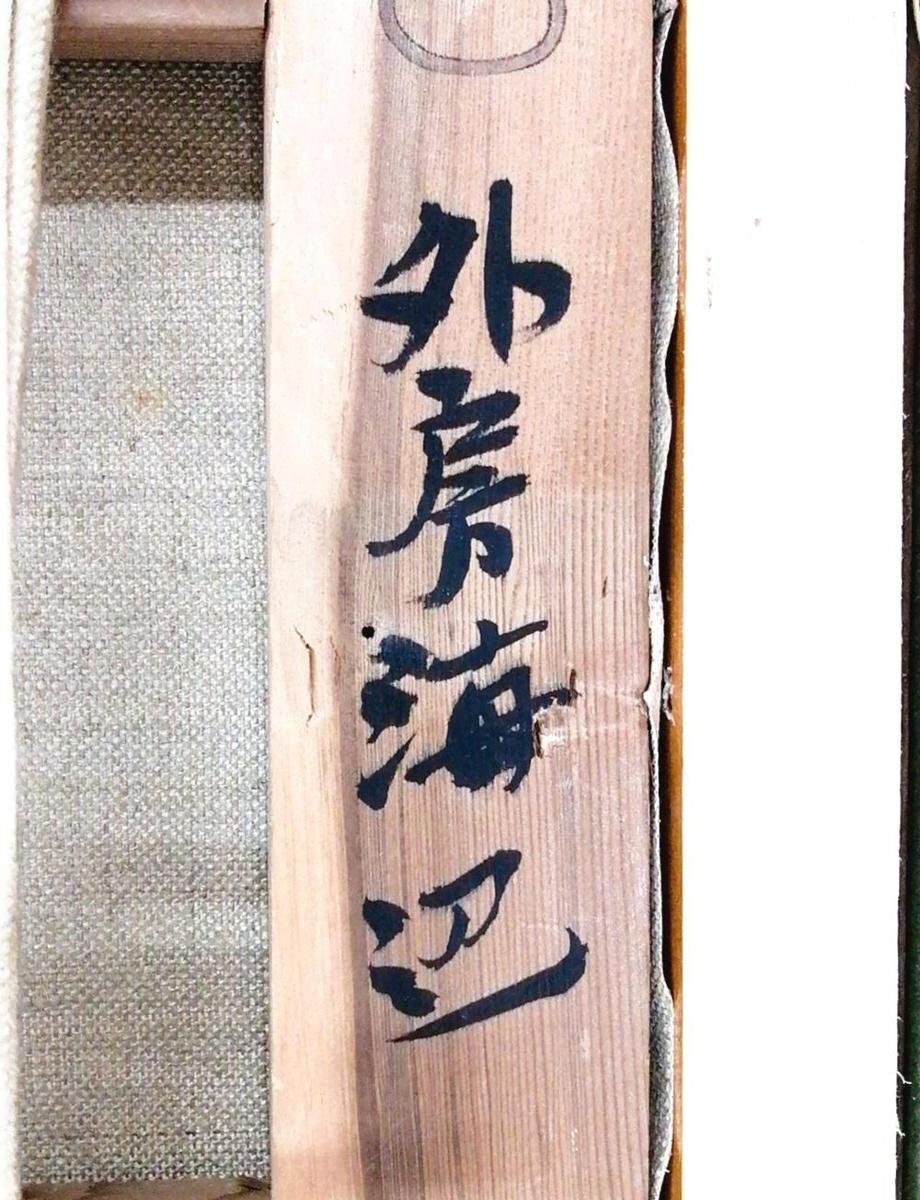 外房海辺